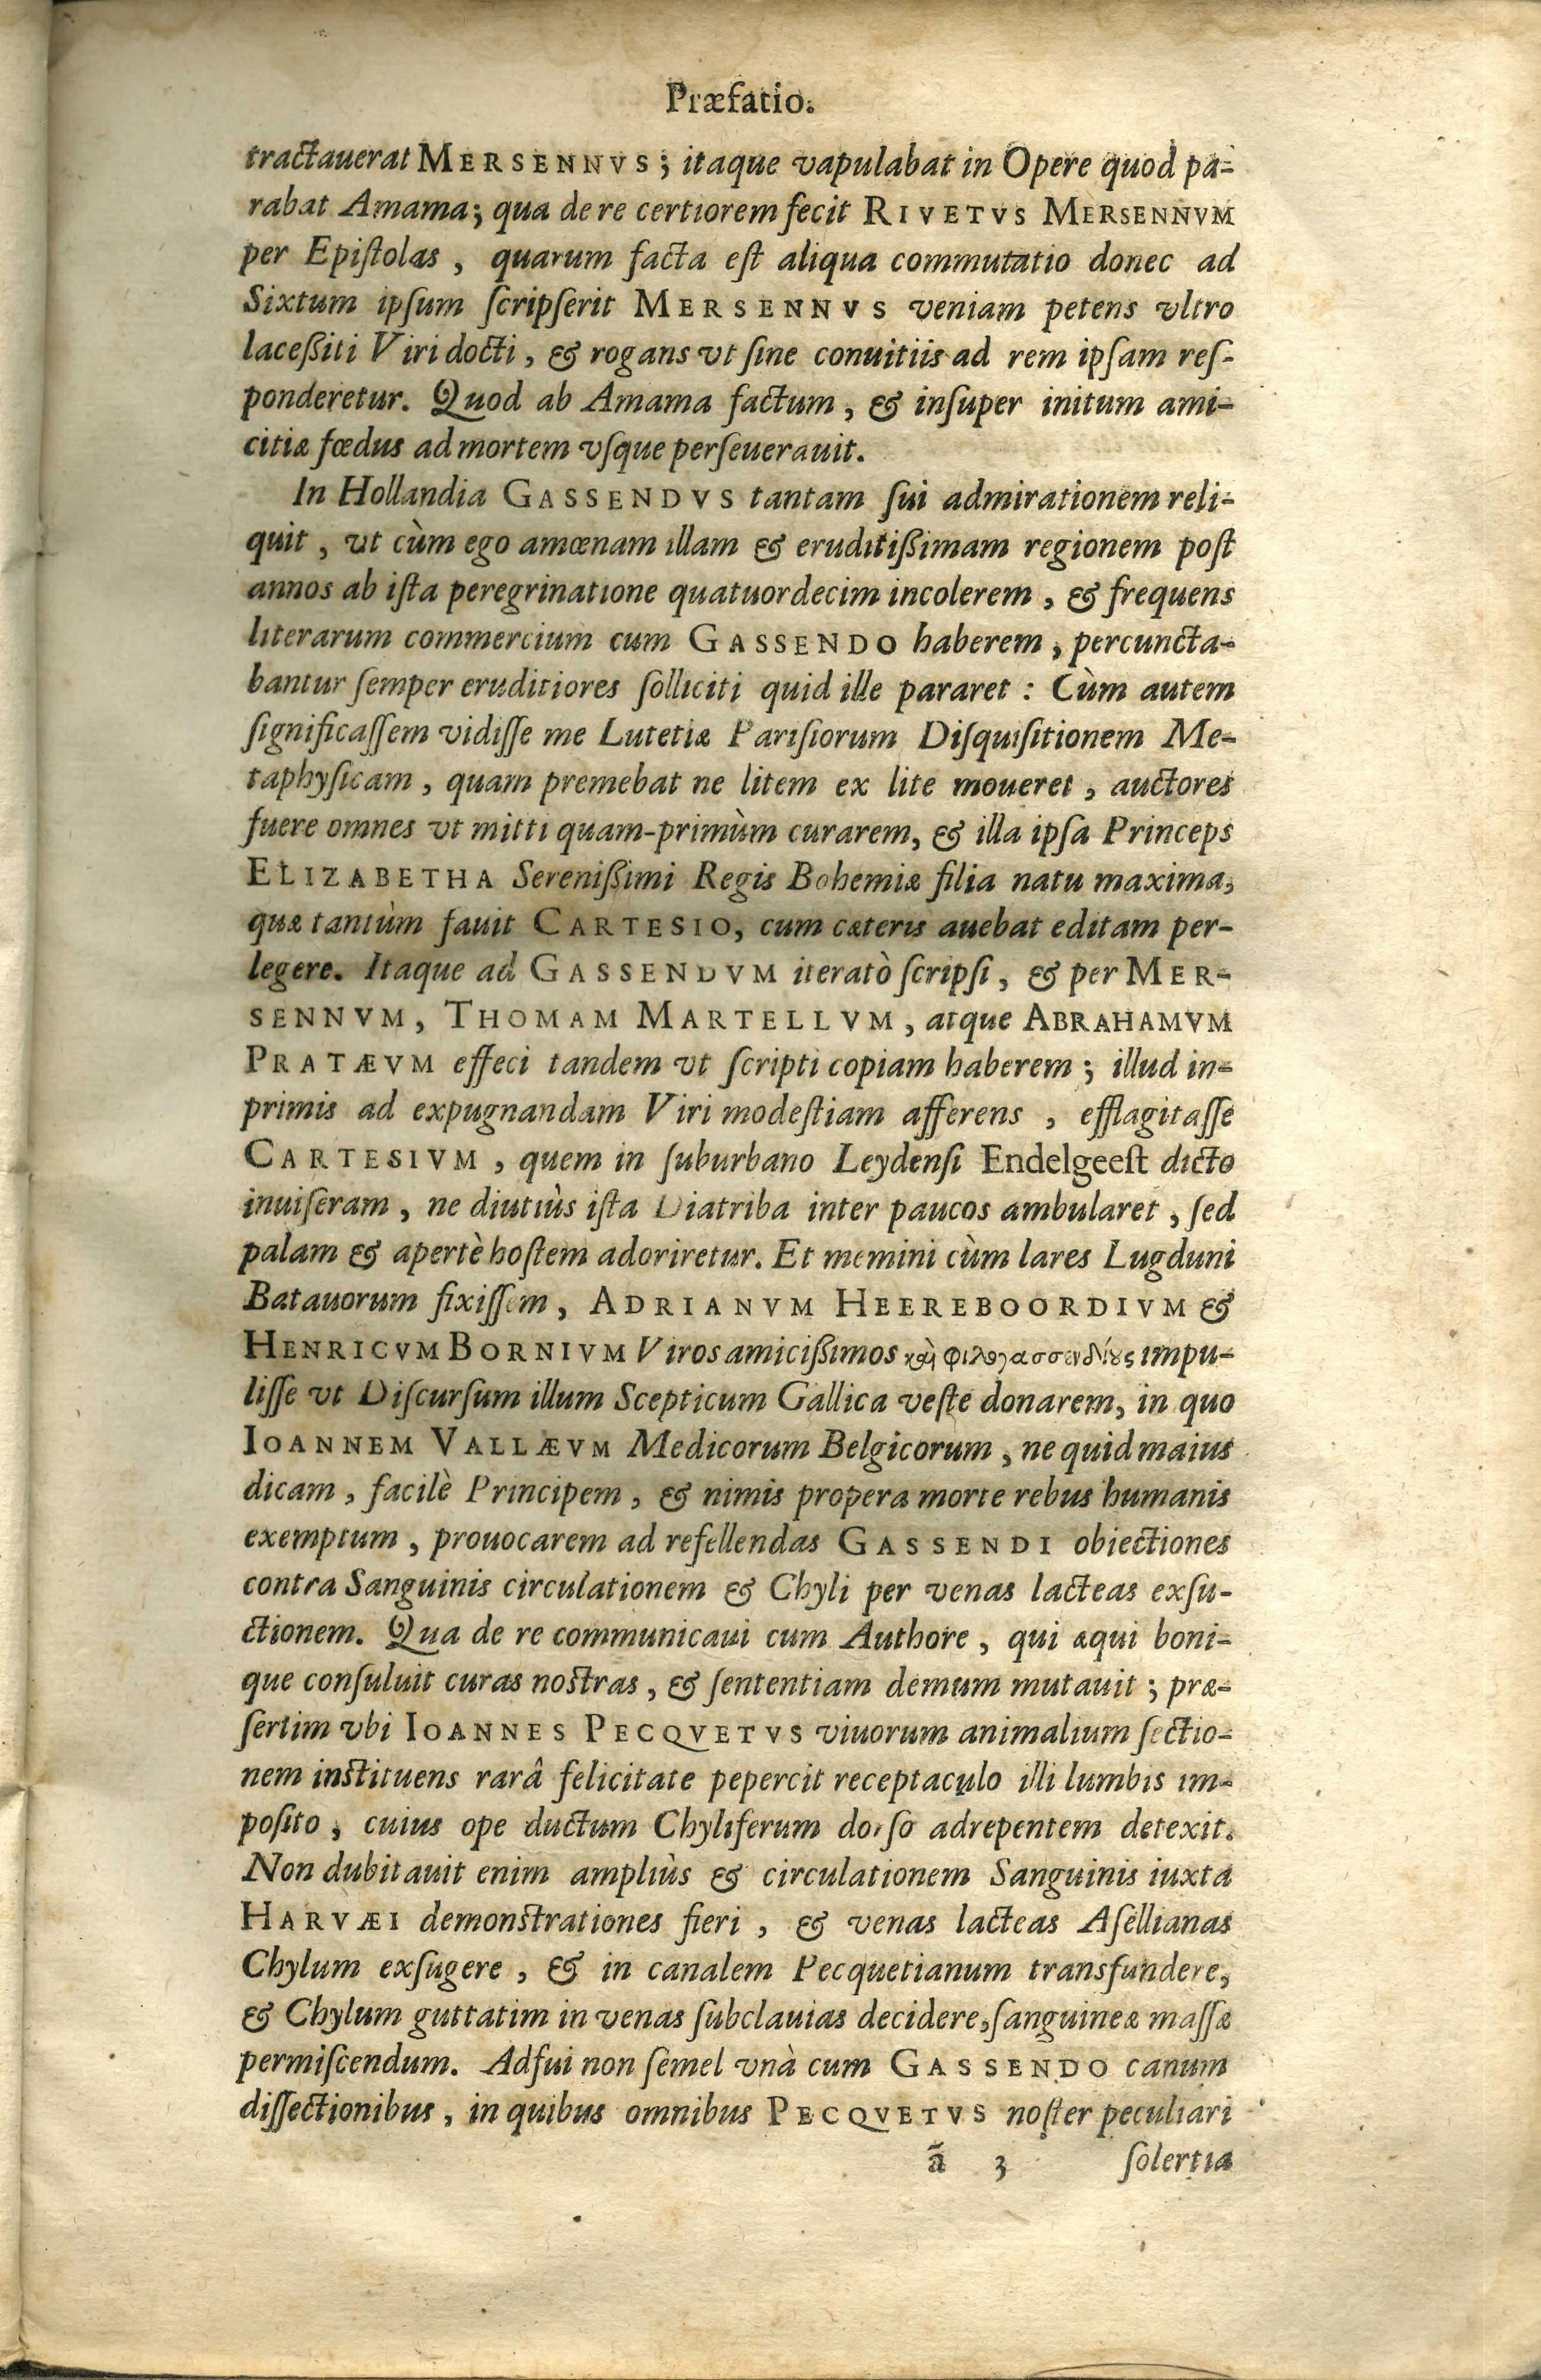 Præfatio.
tractauerat MERSENNVS; itaque vapulabat in Opere quod pa-
rabat Amama; qua de re certiorem fecit RIVETVS MERSENNVM
per Epiſtolas, quarum facta eſt aliqua commutatio donec ad
Sixtum ipſum ſcripſerit MERSENNVS veniam petens vltro
laceßiti Viri docti, & rogans vt ſine conuitiis ad rem ipſam reſ-
ponderetur. Quod ab Amama factum, & inſuper initum ami-
citiæ fœdus ad mortem vſque perſeuerauit.
In Hollandia GASSENDVS tantam ſui admirationem reli-
quit, vt cùm ego amœnam illam & eruditißimam regionem poſt
annos ab iſta peregrinatione quatuordecim incolerem, & frequens
literarum commercium cum GASSENDO haberem, percuncta-
bantur ſemper eruditiores ſolliciti quid ille pararet: Cùm autem
ſignificaſſem vidiſſe me Lutetiæ Pariſiorum Diſquiſitionem Me-
taphyſicam, quam premebat ne litem ex lite moueret, auctores
fuere omnes vt mitti quam-primùm curarem, & illa ipſa Princeps
ELIZABETHA Sereniſſimi Regis Bohemiæ filia natu maxima,
quæ tantùm fauit CARTESIO, cum cæteris auebat editam per-
legere. Itaque ad GASSENDVM iteratò ſcripſi, & per MER-
SENNVM, THOMAM MARTELLVM, atque ABRAHAMVM
PRATÆVM effeci tandem vt ſcripti copiam haberem; illud in-
primis ad expugnandam Viri modeſtiam afferens, efflagitaſſe
CARTESIVM, quem in ſuburbano Leydenſi Endelgeeſt dicto
inuiſeram, ne diutiùs iſta Diatriba inter paucos ambularet, ſed
palam & apertè hoſtem adoriretur. Et memini cùm lares Lugduni
Batauorum fixiſſem, ADRIANVM HEEREBOORDIVM &
HENRICVM BORNIVM Viros amicißimos καὶ φιλογασσενδίους impu-
liſſe vt Diſcurſum illum Scepticum Gallica veſte donarem, in quo
IOANNEM VALLÆVM Medicorum Belgicorum, ne quid maius
dicam, facilè Principem, & nimis propera morte rebus humanis
exemptum, prouocarem ad refellendas GASSENDI obiectiones
contra Sanguinis circulationem & Chyli per venas lacteas exſu-
ctionem. Qua de re communicaui cum Authore, qui æqui boni-
que conſuluit curas noſtras, & ſententiam demum mutauit; præ-
ſertim vbi IOANNES PECQVETVS viuorum animalium ſectio-
nem inſtituens rarâ felicitate pepercit receptaculo illi lumbis im-
poſito, cuius ope ductum Chyliferum dorſo adrepentem detexit.
Non dubitauit enim ampliùs & circulationem Sanguinis iuxta
HARVÆI demonſtrationes fieri, & venas lacteas Aſellianas
Chylum exſugere, & in canalem Pecquetianum transfundere,
& Chylum guttatim in venas ſubclauias decidere, ſanguineæ maſſæ
permiſcendum. Adfui non ſemel vnà cum GASSENDO canum
diſſectionibus, in quibus omnibus PECQVETVS noſter peculiari
ã 3 ſolertia